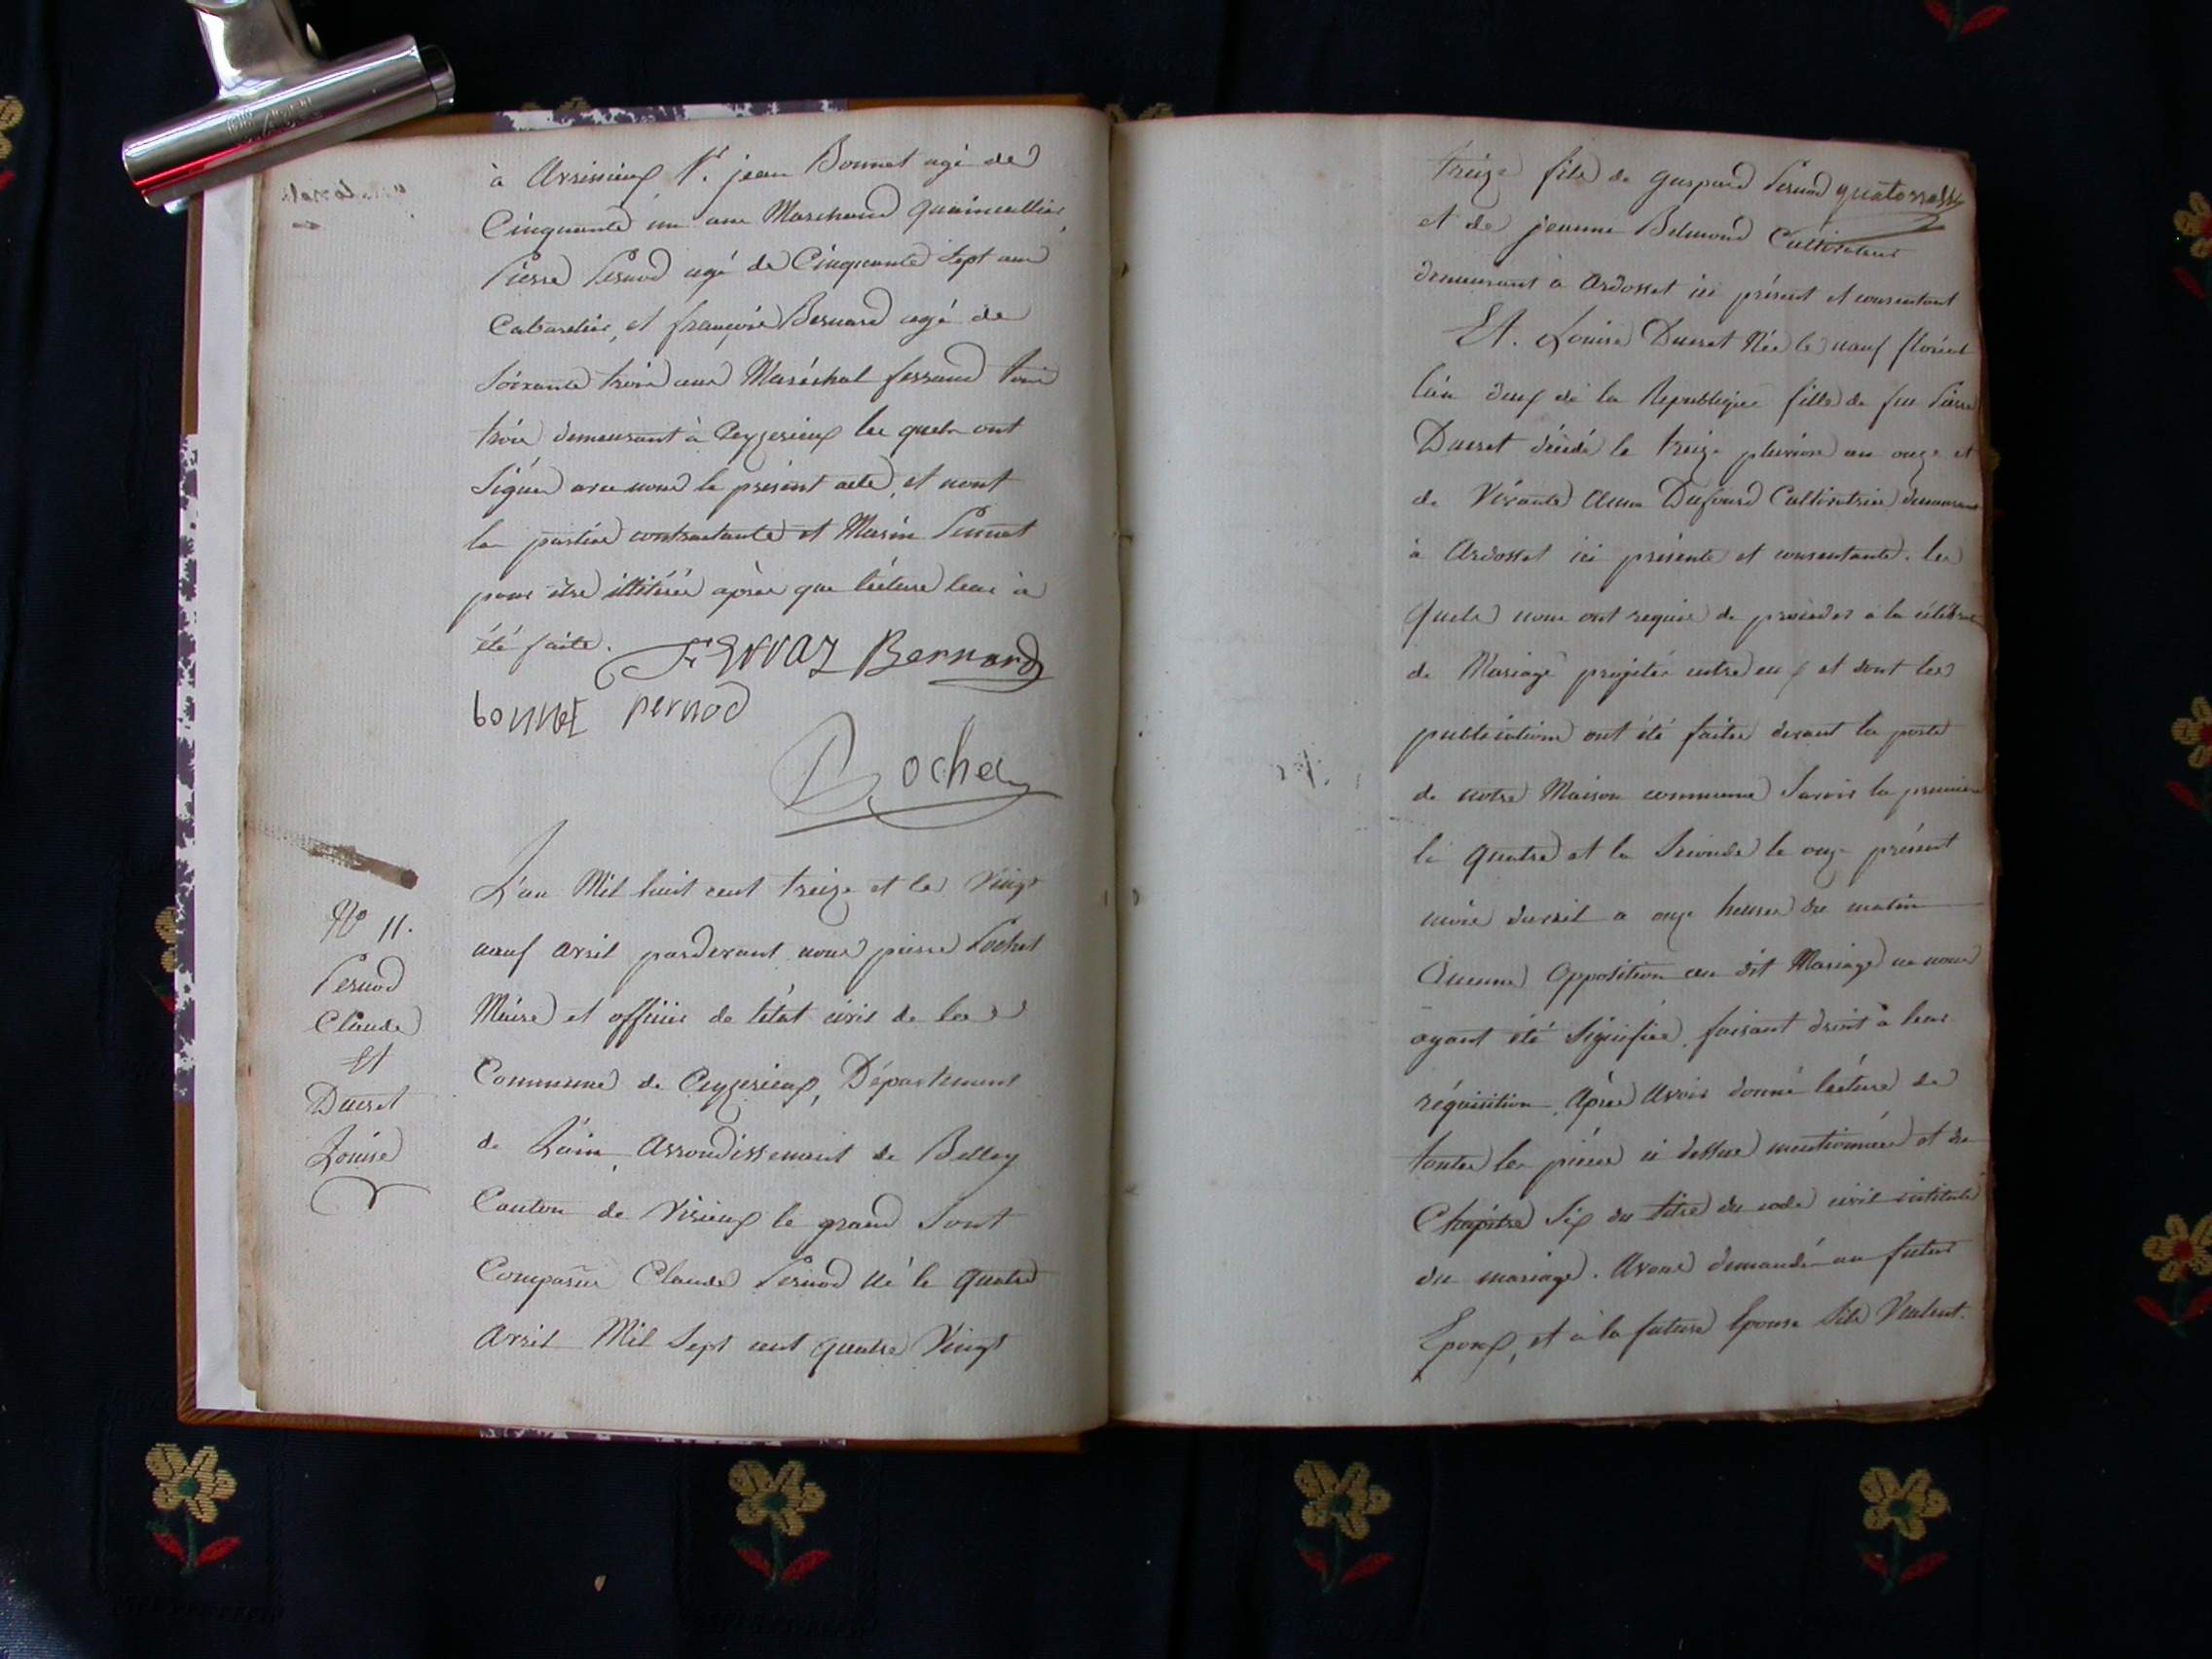 à Arvissieux Sr. jean Bonnet agé de
Cinquante un ans Marchand quaincallier,
Pierre Pernod agé de Cinquante sept ans
Cabaretier, et françois Bernard agé de
soixante trois ans Maréchal ferrand tous
trois demeurant à Ceyzerieux les quels ont
Signés avec nous le présent acte, et nont
les parties contractante et Marin Pernet
pour être illitérés après que lécture leur à
été faite.
Bernard
bonnet pernod
Pochet
L'an Mil huit cent treize et le Vingt
neuf avril pardevant nous pierre Pochet
Maire et officier de létat civil de la
Commune de Ceyzerieux, Département
de Lain, Arrondissement de Belley
Canton de Virieux le grand Sont
Comparus Claude Pernod né le quatre
Avril Mil Sept cent quatre Vingt
No 11.
Pernod
Claude
Et
Ducret
Louise
treize fils de gaspard Pernod
et de jeanne Belmond Cultivateur
demeurant à Ardosset ici présent et consentant
Et. Louise Ducret Née le neuf floréal
l'an deux de la République fille de feu Pierre
Ducret décédé le treize pluviose an onze et
de Vivante Anne Dufourd Cultivatrice demeurant
à Ardosset ici présente et consentante. les
quels nous ont requis de procéder à la célébra
de Mariage projetée entre eux et dont les
publications ont été faites devant la porte
de notre Maison commune Savoir la première
le quatre et la Seconde le onze présent
mois davril a onze heures du matin
Aucune Opposition au dit Mariage ne nous
ayant été Signifiée, faisant droit à leur
réquisition, Après Avoir donné lécture de
toutes les pièces ci dessus mentionnées et du
Chapitre Six du titre du code civil intitulé
du mariage. Avons demandé au futur
Epoux, et à la future Epouse Sils Veulent.